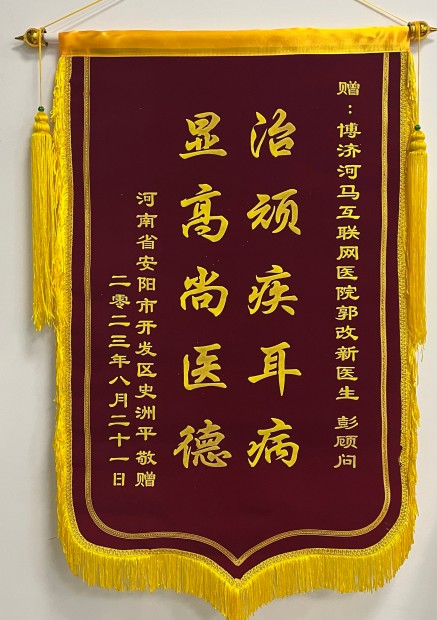 赠：博济河马互联网医院郭改新医生 彭顾问
治顽疾耳病
显高尚医德
河南省安阳市开发区史洲平敬赠
二零二三年八月二十一日